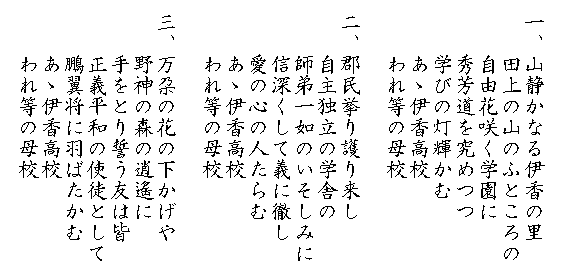 一、山静かなる伊香の里
田上の山のふところの
自由花咲く学園に
秀芳道を究めつつ
学びの灯輝かむ
あゝ伊香高校
われ等の母校
二、郡民挙り護り来し
自主独立の学舎の
師弟一如のいそしみに
信深くして義に徹し
愛の心の人たらむ
あゝ伊香高校
われ等の母校
三、万朶の花の下かげや
野神の森の逍遙に
手をとり誓う友は皆
正義平和の使徒として
鵬翼将に羽ばたかむ
あゝ伊香高校
われ等の母校